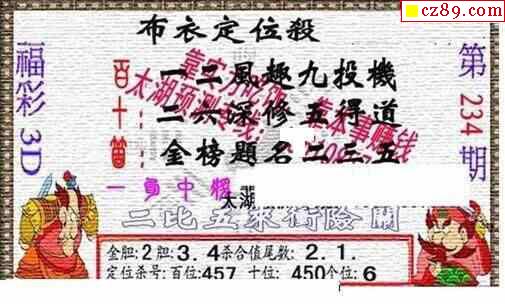 cz89.com
布衣定位殺
福彩3D
第234期
百十個
一二風趣九投機
二六深修五得道
金榜題名二三五
一負中
太湖
二比五來衝險關
金胆:2胆:3.4杀合值尾数:2.1.
定位杀号:百位:457 十位:450个位:6